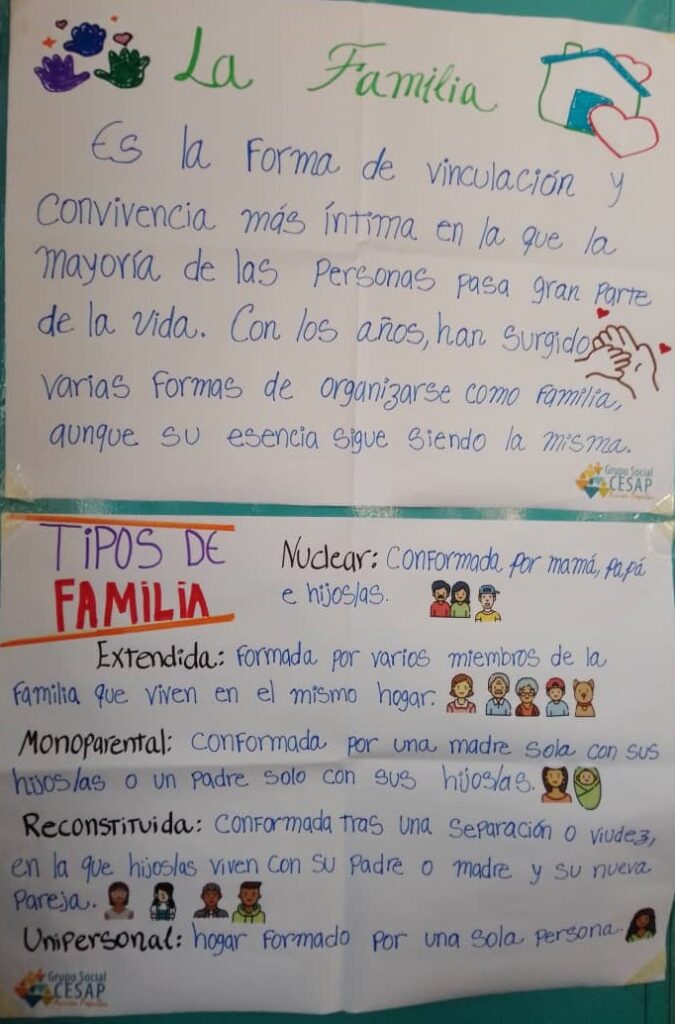 La Familia
Es la Forma de vinculación y
Convivencia más íntima en la que la
mayoría de las Personas pasa gran parte
de la vida. Con los años, han surgido
varias Formas de organizarse como Familia,
aunque su esencia sigue siendo la misma.
Grupo Social
CESAP
Acción Popular
TiPOS DE
FAMILIA
Nuclear: Conformada por mamá, papá
e hijos/as.
Extendida: Formada por varios miembros de la
Familia que viven en el mismo hogar.
Monoparental: Conformada por una madre sola con sus
hijos/as o un padre solo con sus hijos/as.
Reconstituida: Conformada tras una separación o viudez,
en la que hijos/as viven con su padre o madre y su nueva
pareja.
Unipersonal: hogar Formado por una sola persona.
Grupo Social
CESAP
Acción Popular